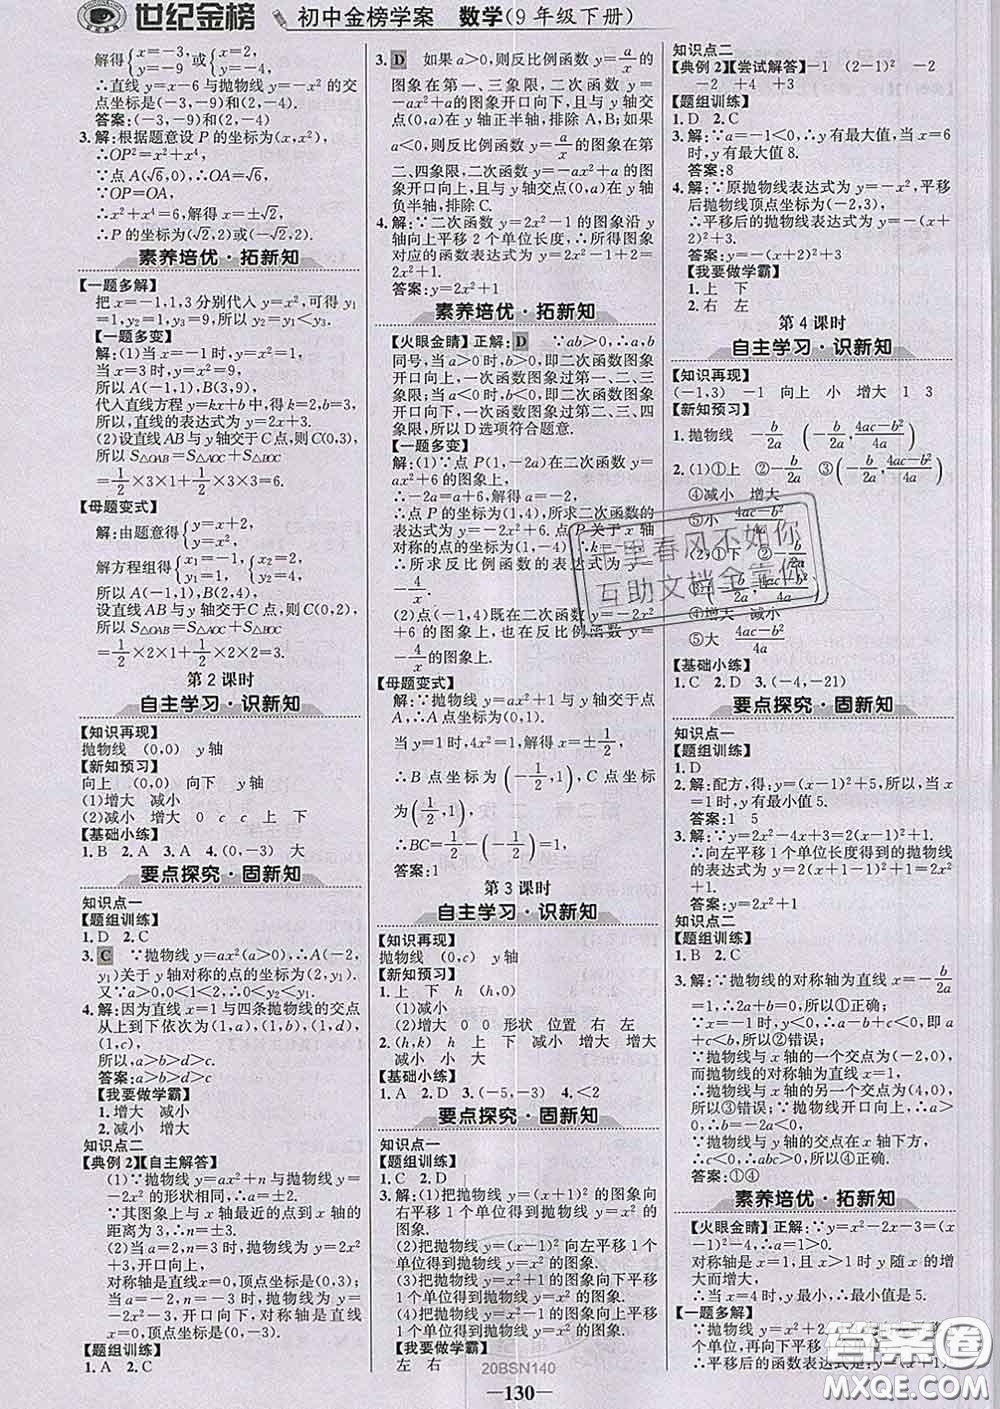 世纪金榜 初中金榜学案 数学(9年级下册)
解得{x=-3,y=-9或{x=2,y=-4.
∴直线y=x-6与抛物线y=-x²的交
点坐标是(-3,-9)和(2,-4).
答案:(-3,-9)和(2,-4)
3.解:根据题意设P的坐标为(x,x²),
∴OP²=x²+x⁴,
∵点A(√6,0),∴OA=√6,
∵OP=OA,
∴x²+x⁴=6,解得x=±√2,
∴P的坐标为(√2,2)或(-√2,2).
素养培优·拓新知
【一题多解】
把x=-1,1,3分别代入y=x²,可得y₁
=1,y₂=1,y₃=9,所以y₂=y₁<y₃.
【一题多变】
解:(1)当x=-1时,y=x²=1,
当x=3时,y=x²=9,
所以A(-1,1),B(3,9),
代入直线方程y=kx+b中,得k=2,b=3,
所以,直线的表达式为y=2x+3.
(2)设直线AB与y轴交于C点,则C(0,3),
所以S△OAB=S△AOC+S△BOC
=1/2×3×1+1/2×3×3=6.
【母题变式】
解:由题意得{y=x+2,y=x²,
解方程组得{x=-1,y=1,{x=2,y=4,
所以A(-1,1),B(2,4),
设直线AB与y轴交于C点,则C(0,2),
所以S△OAB=S△AOC+S△BOC
=1/2×2×1+1/2×2×2=3.
第2课时
自主学习·识新知
【知识再现】
抛物线 (0,0) y轴
【新知预习】
向上 (0,0) 向下 y轴
(1)增大 减小
(2)减小 增大 0 c c 上 下
【基础小练】
1.B 2.A 3.A 4.(0,-3) 大
要点探究·固新知
知识点一
【题组训练】
1.D 2.C
3. C ∵抛物线y=ax²(a>0),∴A(-2,
y₁)关于y轴对称的点的坐标为(2,y₁).
又∵a>0,0<1<2,∴0<y₂<y₁.
4.解:因为直线x=1与四条抛物线的交点
从上到下依次为(1,a),(1,b),(1,d),
(1,c),
所以,a>b>d>c.
答案:a>b>d>c
【我要做学霸】
1.增大 减小
2.减小 增大
知识点二
【典例2】【自主解答】
(1)∵抛物线y=ax²+n与抛物线y=
-2x²的形状相同,∴a=±2.
∵其图象上与x轴最近的点到x轴的
距离为3,∴n=±3.
(2)当a=2,n=3时,抛物线开口向上,
对称轴是直线x=0,顶点坐标是(0,3);
当a=-2,n=-3时,抛物线y=-2x²
-3,开口向下,对称轴是直线x
=0,顶点坐标是(0,-3).
【题组训练】
1.A 2.C
3. D 如果a>0,则反比例函数y=a/x
图象在第一、三象限,二次函数y=
-ax²+a的图象开口向下,且与y轴交
点在y轴正半轴,排除A,B;如果a<
0,则反比例函数y=a/x的图象在第
二、四象限,二次函数y=-ax²+a的
图象开口向上,且与y轴交点在y轴负
半轴,排除C.
4.解:∵二次函数y=2x²-1的图象沿y
轴向上平移2个单位长度,∴所得图象
对应的函数表达式为y=2x²-1+2=
2x²+1.
答案:y=2x²+1
素养培优·拓新知
【火眼金睛】正解: D ∵ab>0,∴a,b
同号,当a>0时,b>0,即二次函数图象
开口向上,一次函数图象过第一、二、三
象限;当a<0时,b<0,即二次函数图象
开口向下,一次函数图象过第二、三、四
象限,所以D选项符合题意.
【一题多变】
解:(1)∵点P(1,-2a)在二次函数y=
ax²+6的图象上,
∴-2a=a+6,解得a=-2.
∴点P的坐标为(1,4),所求二次函数的
表达式为y=-2x²+6,点P关于x轴
对称的点的坐标为(1,-4),∴k=-4.
∴所求反比例函数的表达式为y=
-4/x.
(2)点(-1,4)既在二次函数y=-2x²
+6的图象上,也在反比例函数y=
-4/x的图象上.
【母题变式】
解:∵抛物线y=ax²+1与y轴交于点
A,∴A点坐标为(0,1).
当y=1时,4x²=1,解得x=±1/2,
∴B点坐标为(-1/2,1),C点坐标
为(1/2,1),
∴BC=1/2-(-1/2)=1.
答案:1
第3课时
自主学习·识新知
【知识再现】
抛物线 (0,c) y轴
【新知预习】
1.上 下 h (h,0)
(1)减小
(2)增大 0 0 形状 位置 右 左
2.(h,k) h 上 下 减小 增大 增大
减小 小 大
【基础小练】
1.A 2.D 3.(-5,-3) 4.<2
要点探究·固新知
知识点一
【题组训练】
1.C 2.D
3.解:(1)把抛物线y=(x+1)²的图象向
右平移1个单位得抛物线y=x²的
图象.
(2)把抛物线y=(x-1)²向左平移1个
单位得抛物线y=x²的图象.
(3)把抛物线y=x²+1的图象向下平移
1个单位得抛物线y=x²的图象.
(4)把抛物线y=x²-1的图象向上平移
1个单位得抛物线y=x²的图象.
【我要做学霸】
左 右
知识点二
【典例2】【尝试解答】-1 (2-1)² -2
-2 +4 +3
【题组训练】
1.D 2.C
3.解:∵a=-1<0,∴y有最大值,当x=6
时,y有最大值8.
答案:8
4.解:∵原抛物线表达式为y=-x²,平移
后抛物线顶点坐标为(-2,3),
∴平移后的抛物线表达式为y=-(x+
2)²+3.
答案:y=-(x+2)²+3
【我要做学霸】
1.上 下
2.右 左
第4课时
自主学习·识新知
【知识再现】
(-1,3) -1 向上 小 增大 1 3
【新知预习】
1.抛物线 -b/2a (-b/2a,(4ac-b²)/4a)
2.(1)①上 ②-b/2a ③(-b/2a,(4ac-b²)/4a)
④减小 增大
⑤小 (4ac-b²)/4a
(2)①下 ②-b/2a
④增大 减小
⑤大 (4ac-b²)/4a
【基础小练】
1.C 2.D 3.(-4,-21)
要点探究·固新知
知识点一
【题组训练】
1.D
2.解:配方,得,y=(x-1)²+5,所以,当x
=1时,y有最小值5.
答案:1 5
3.解:∵y=2x²-4x+3=2(x-1)²+1,
∴向左平移1个单位长度得到的抛物线
的表达式为y=2(x+1-1)²+1,
即y=2x²+1.
答案:y=2x²+1
知识点二
【题组训练】
1.B 2.C
3.解:∵抛物线的对称轴为直线x=-b/2a
=1,∴2a+b=0,所以①正确;
∵x=-1时,y<0,∴a-b+c<0,即a
+c<b,所以②错误;
∵抛物线与x轴的一个交点为(-2,0),
而抛物线的对称轴为直线x=1,
∴抛物线与x轴的另一个交点为(4,0),
所以③错误;∵抛物线开口向上,∴a>
0,∴b=-2a<0,
∵抛物线与y轴的交点在x轴下方,
∴c<0,∴abc>0,所以④正确.
答案:①④
素养培优·拓新知
【火眼金睛】正解:∵y=x²-2x-3=(x
-1)²-4,∴a=1>0.
对称轴是x=1,∴x>1时y随x的增
大而增大,
∴当x=4时,y最小,∴最小值是5.
【一题多解】
千里春风不如你
互助文档全靠你
20BSN140
—130—
答案圈
MXQE.COM